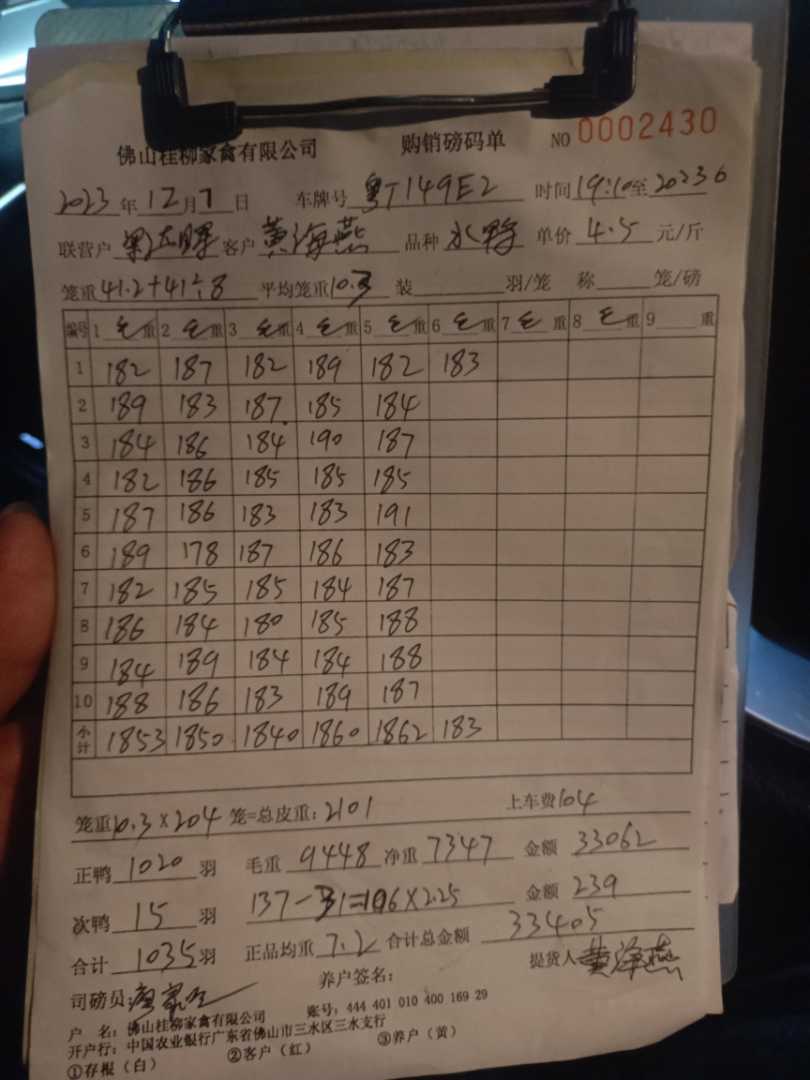 佛山桂柳家禽有限公司 购销磅码单 NO 0002430
2023年12月7日 车牌号 粤T149E2 时间19:10至20236
联营户 客户 黄海燕 品种 水鸭 单价 4.5 元/斤
笼重41.2+41÷8 平均笼重10.3 装 羽/笼 称 笼/磅
编号 1 毛重 2 毛重 3 毛重 4 毛重 5 毛重 6 毛重 7 毛重 8 毛重 9 重
1 182 187 182 189 182 183
2 189 183 187 185 184
3 184 186 184 190 187
4 182 186 185 185 185
5 187 186 183 183 191
6 189 178 187 186 183
7 182 185 185 184 187
8 186 184 180 185 188
9 184 189 184 184 188
10 188 186 183 189 187
小计 1853 1850 1840 1860 1862 183
笼重10.3×204 笼=总皮重:2101 上车费104
正鸭 1020 羽 毛重 9448 净重 7347 金额 33062
次鸭 15 羽 137-31=106×2.25 金额 239
合计 1035 羽 正品均重 7.2 合计总金额 33405
司磅员: 养户签名: 提货人 黄海燕
户 名:佛山桂柳家禽有限公司 账号:444 401 010 400 169 29
开户行:中国农业银行广东省佛山市三水区三水支行
①存根(白) ②客户(红) ③养户(黄)